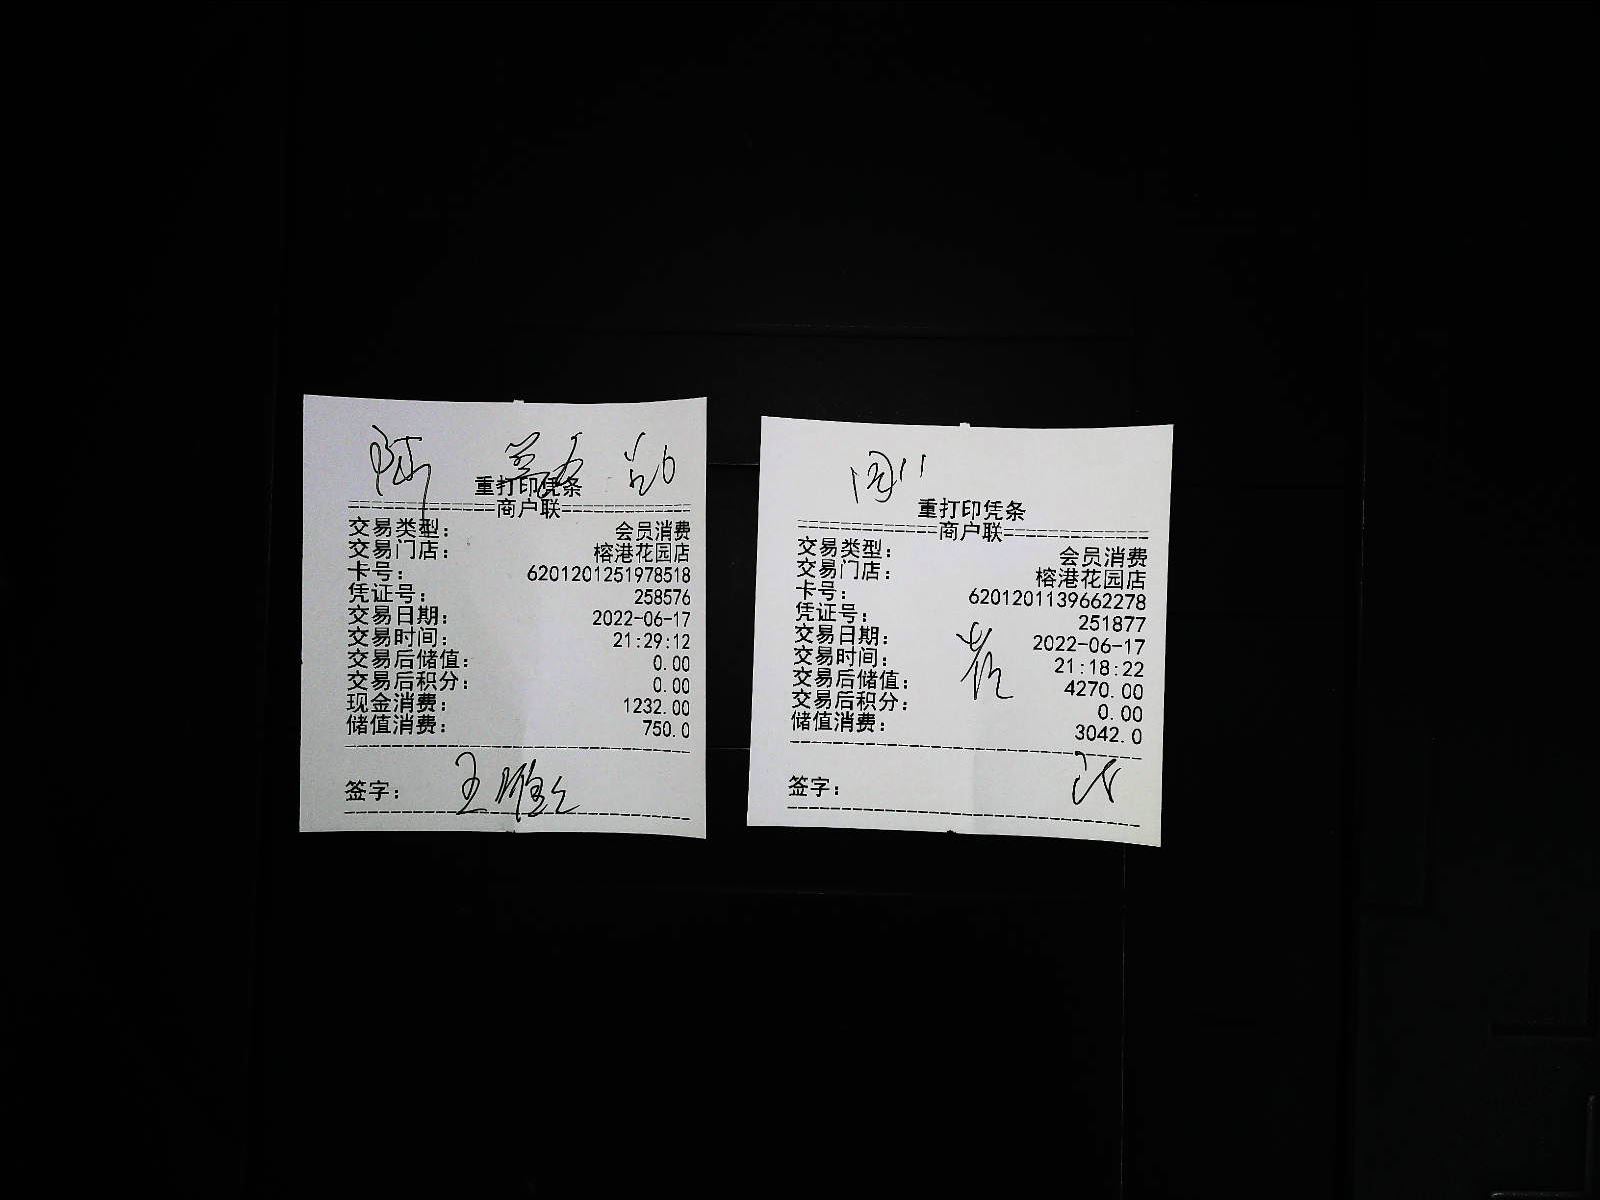 重打印凭条
============商户联============
交易类型： 会员消费
交易门店： 榕港花园店
卡号： 6201201251978518
凭证号： 258576
交易日期： 2022-06-17
交易时间： 21:29:12
交易后储值： 0.00
交易后积分： 0.00
现金消费： 1232.00
储值消费： 750.0
签字：
重打印凭条
============商户联============
交易类型： 会员消费
交易门店： 榕港花园店
卡号： 6201201139662278
凭证号： 251877
交易日期： 2022-06-17
交易时间： 21:18:22
交易后储值： 4270.00
交易后积分： 0.00
储值消费： 3042.0
签字：